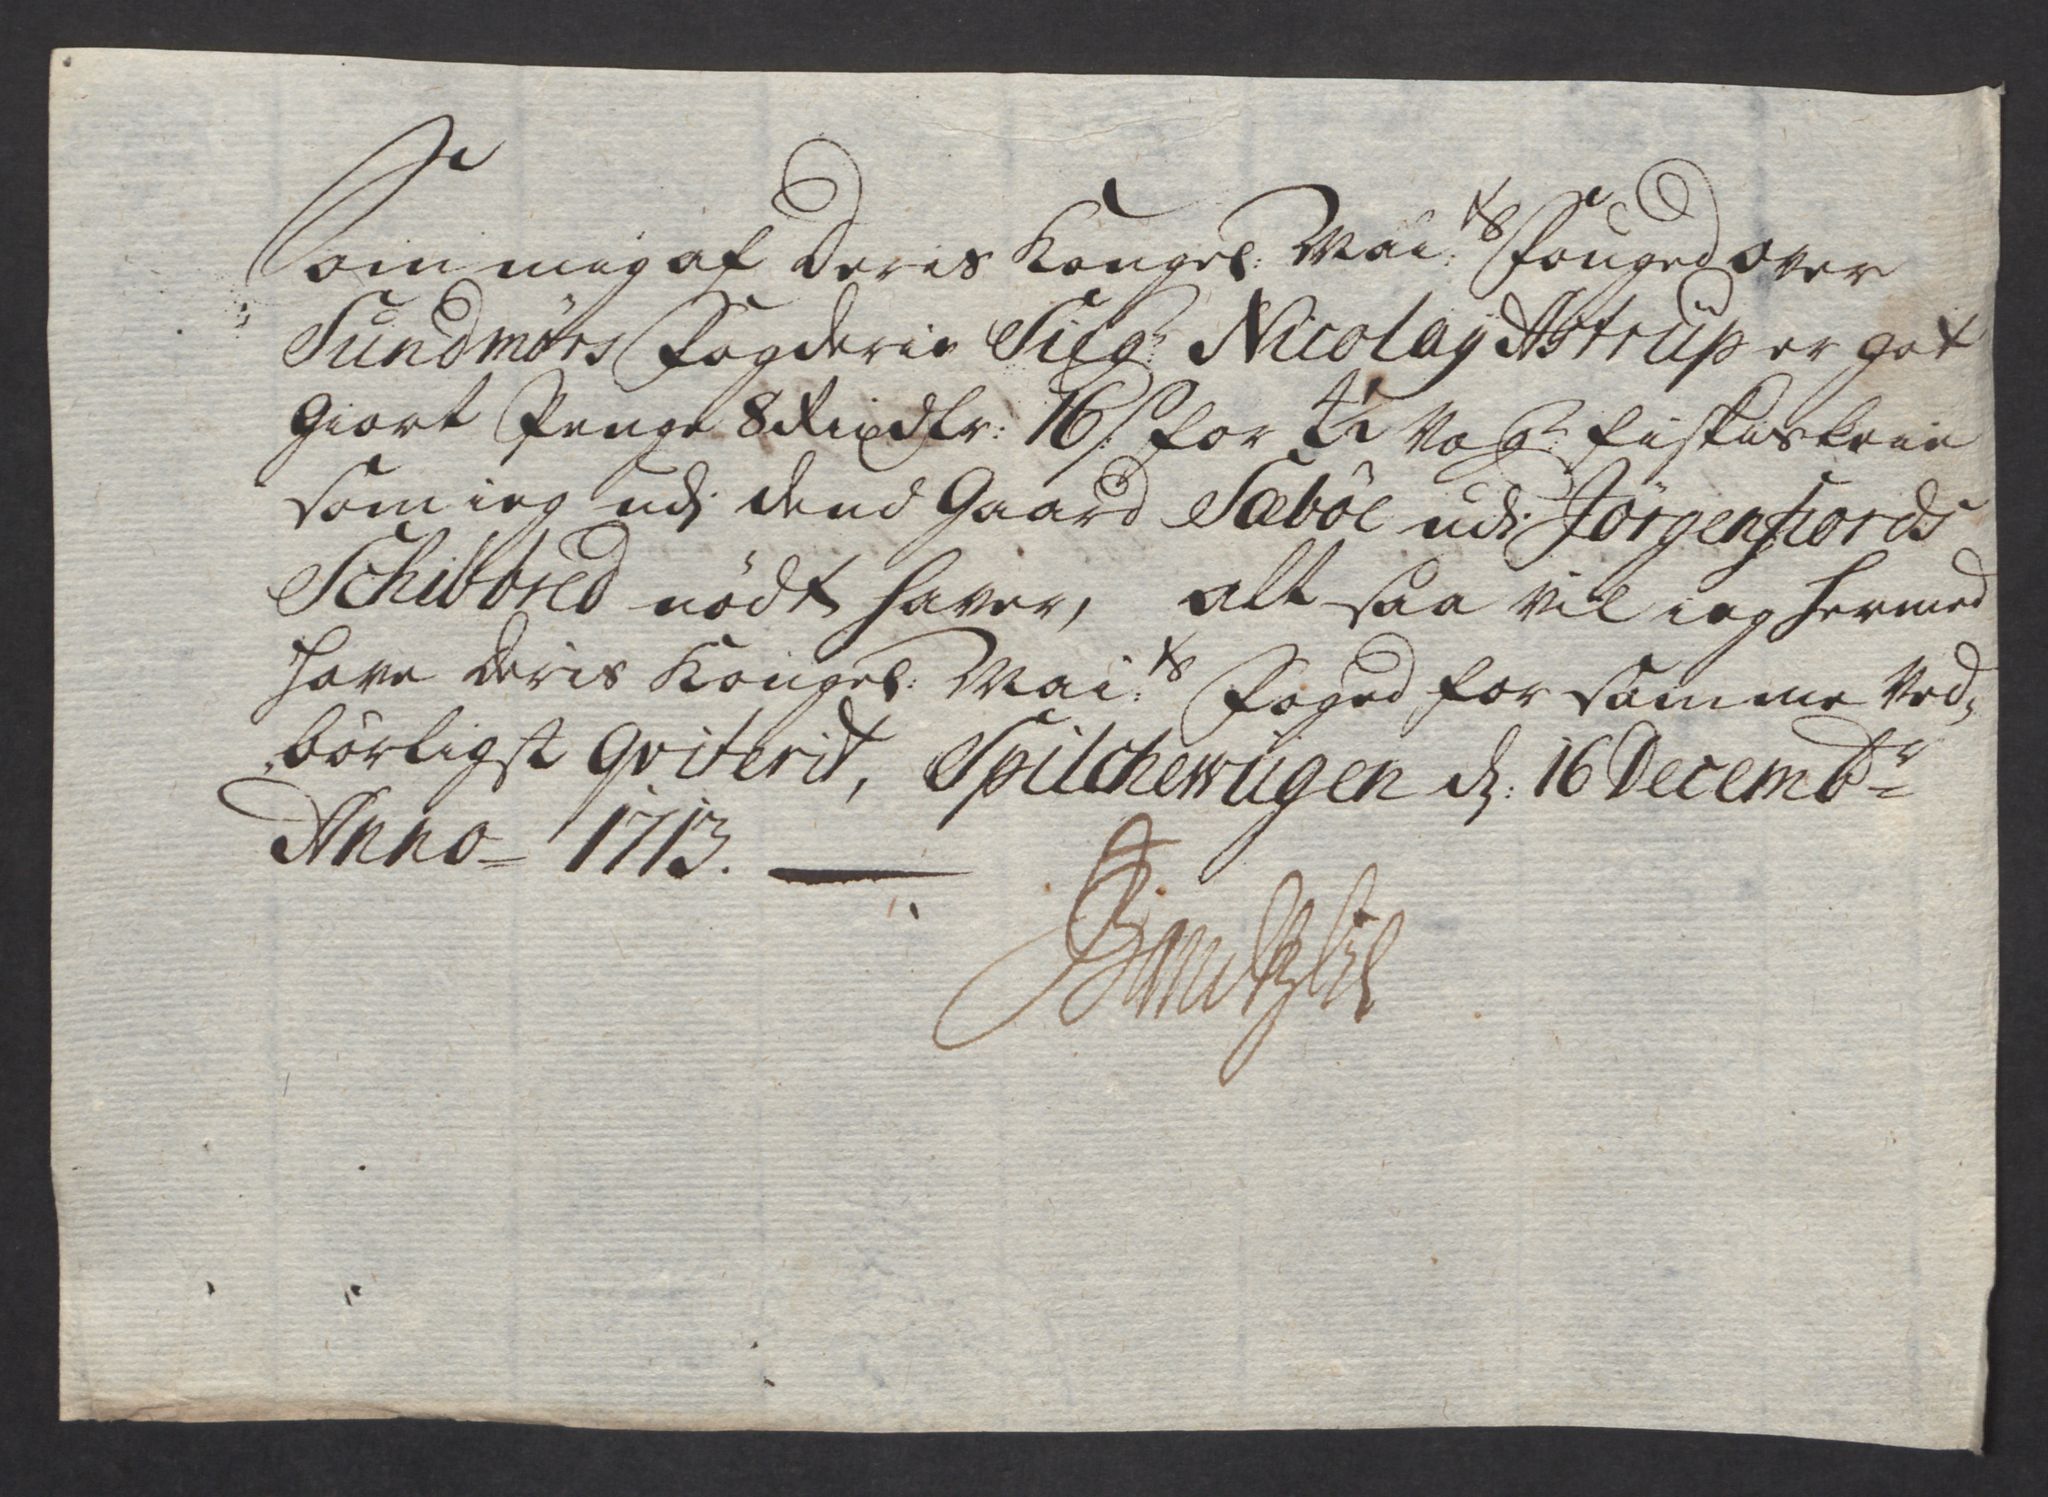 Som mig af Deris Kongel: Mai:ts Fouged over
Sundmørs Fogderie Sieg:r Nicolay Astrup er got
giort Penge 8 Rixdlr: 16 s for Vog:r fiskeskeie
som ieg udj dend Gaard Sæbøe udj Jörgenfiords
Schibbred nödt haver, alt saa vil ieg hermed
have Deris Kongel: Mai:ts Foged for samme Ved,,
börligst qviterit, Spilchewigen d: 16 Decembr
Anno 1713.